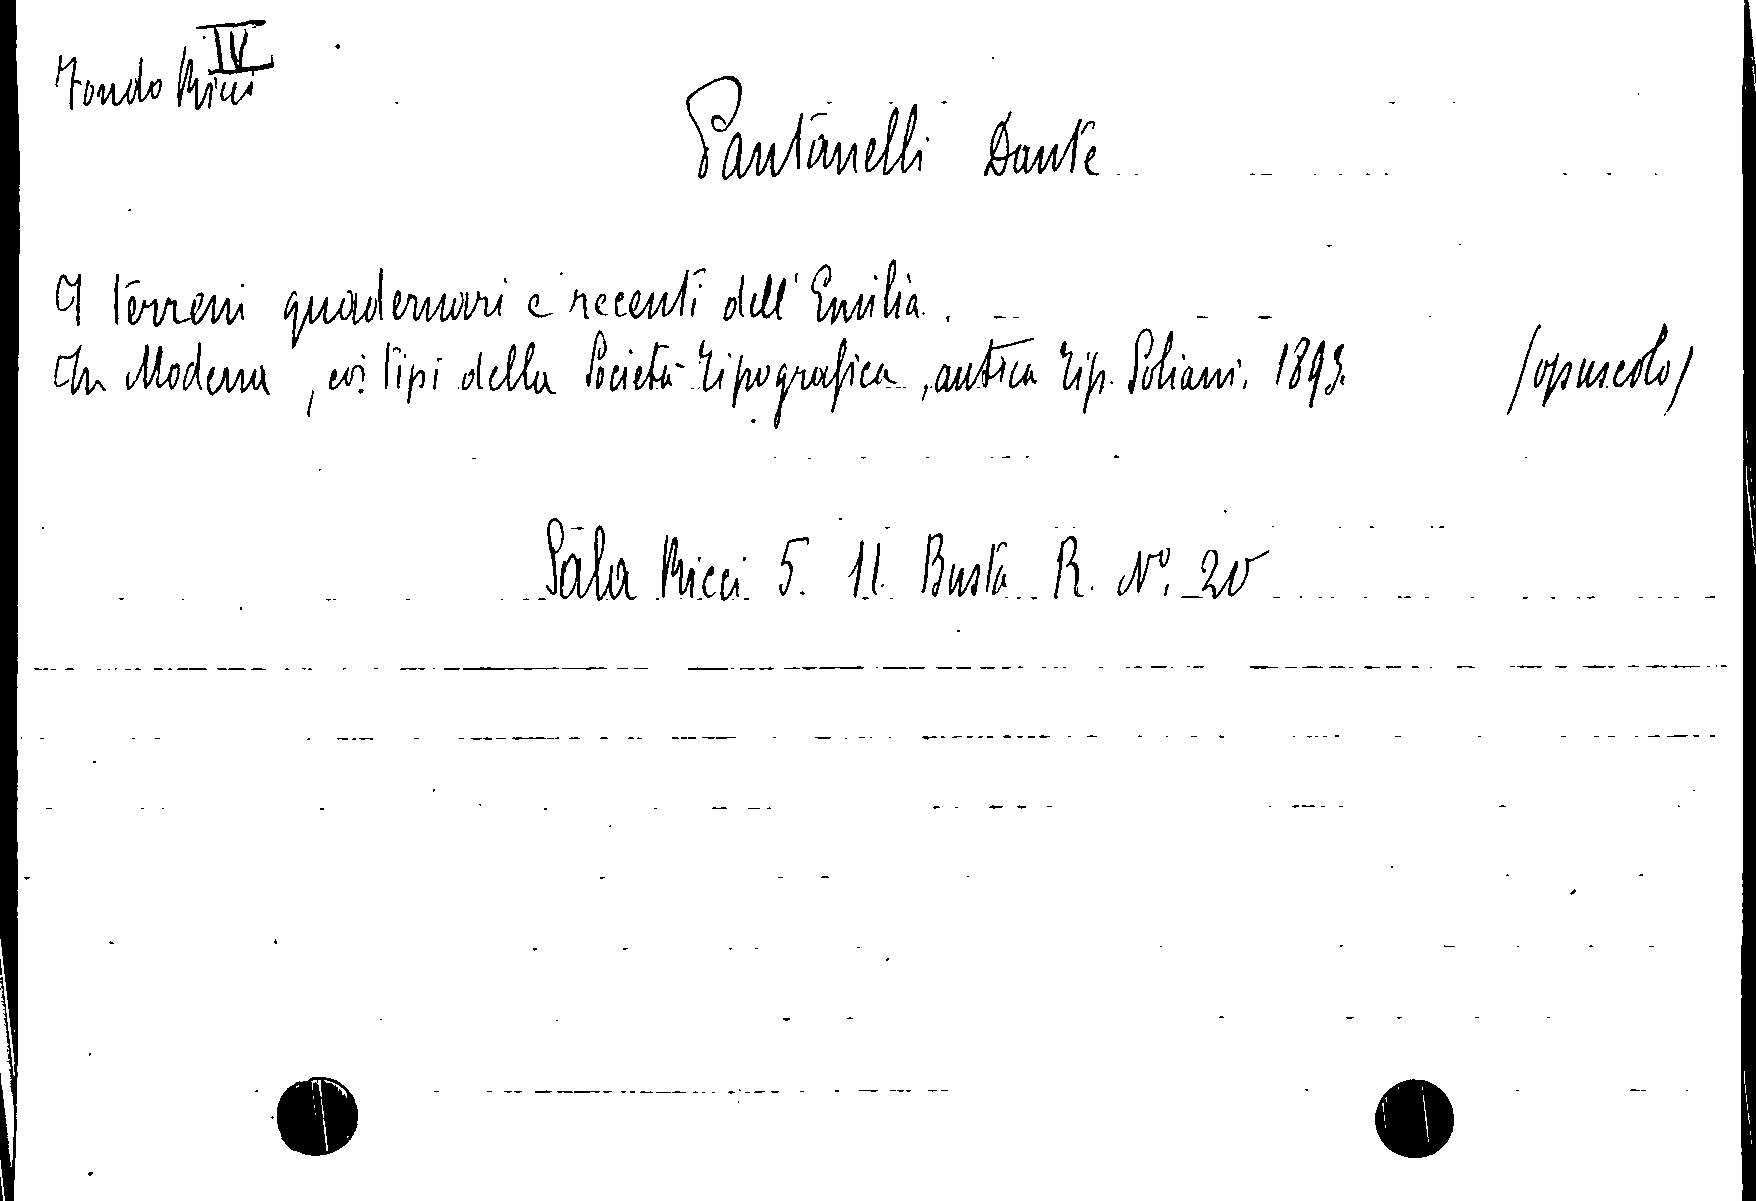 IV
Fondo Ricci
Pantanelli Dante
I terreni quadernari e recenti dell'Emilia.
In Modena, coi tipi della Società Tipografica, antica Tip. Soliani. 1893. /opuscolo/
Sala Ricci 5. 11. Busta R. N°. 20